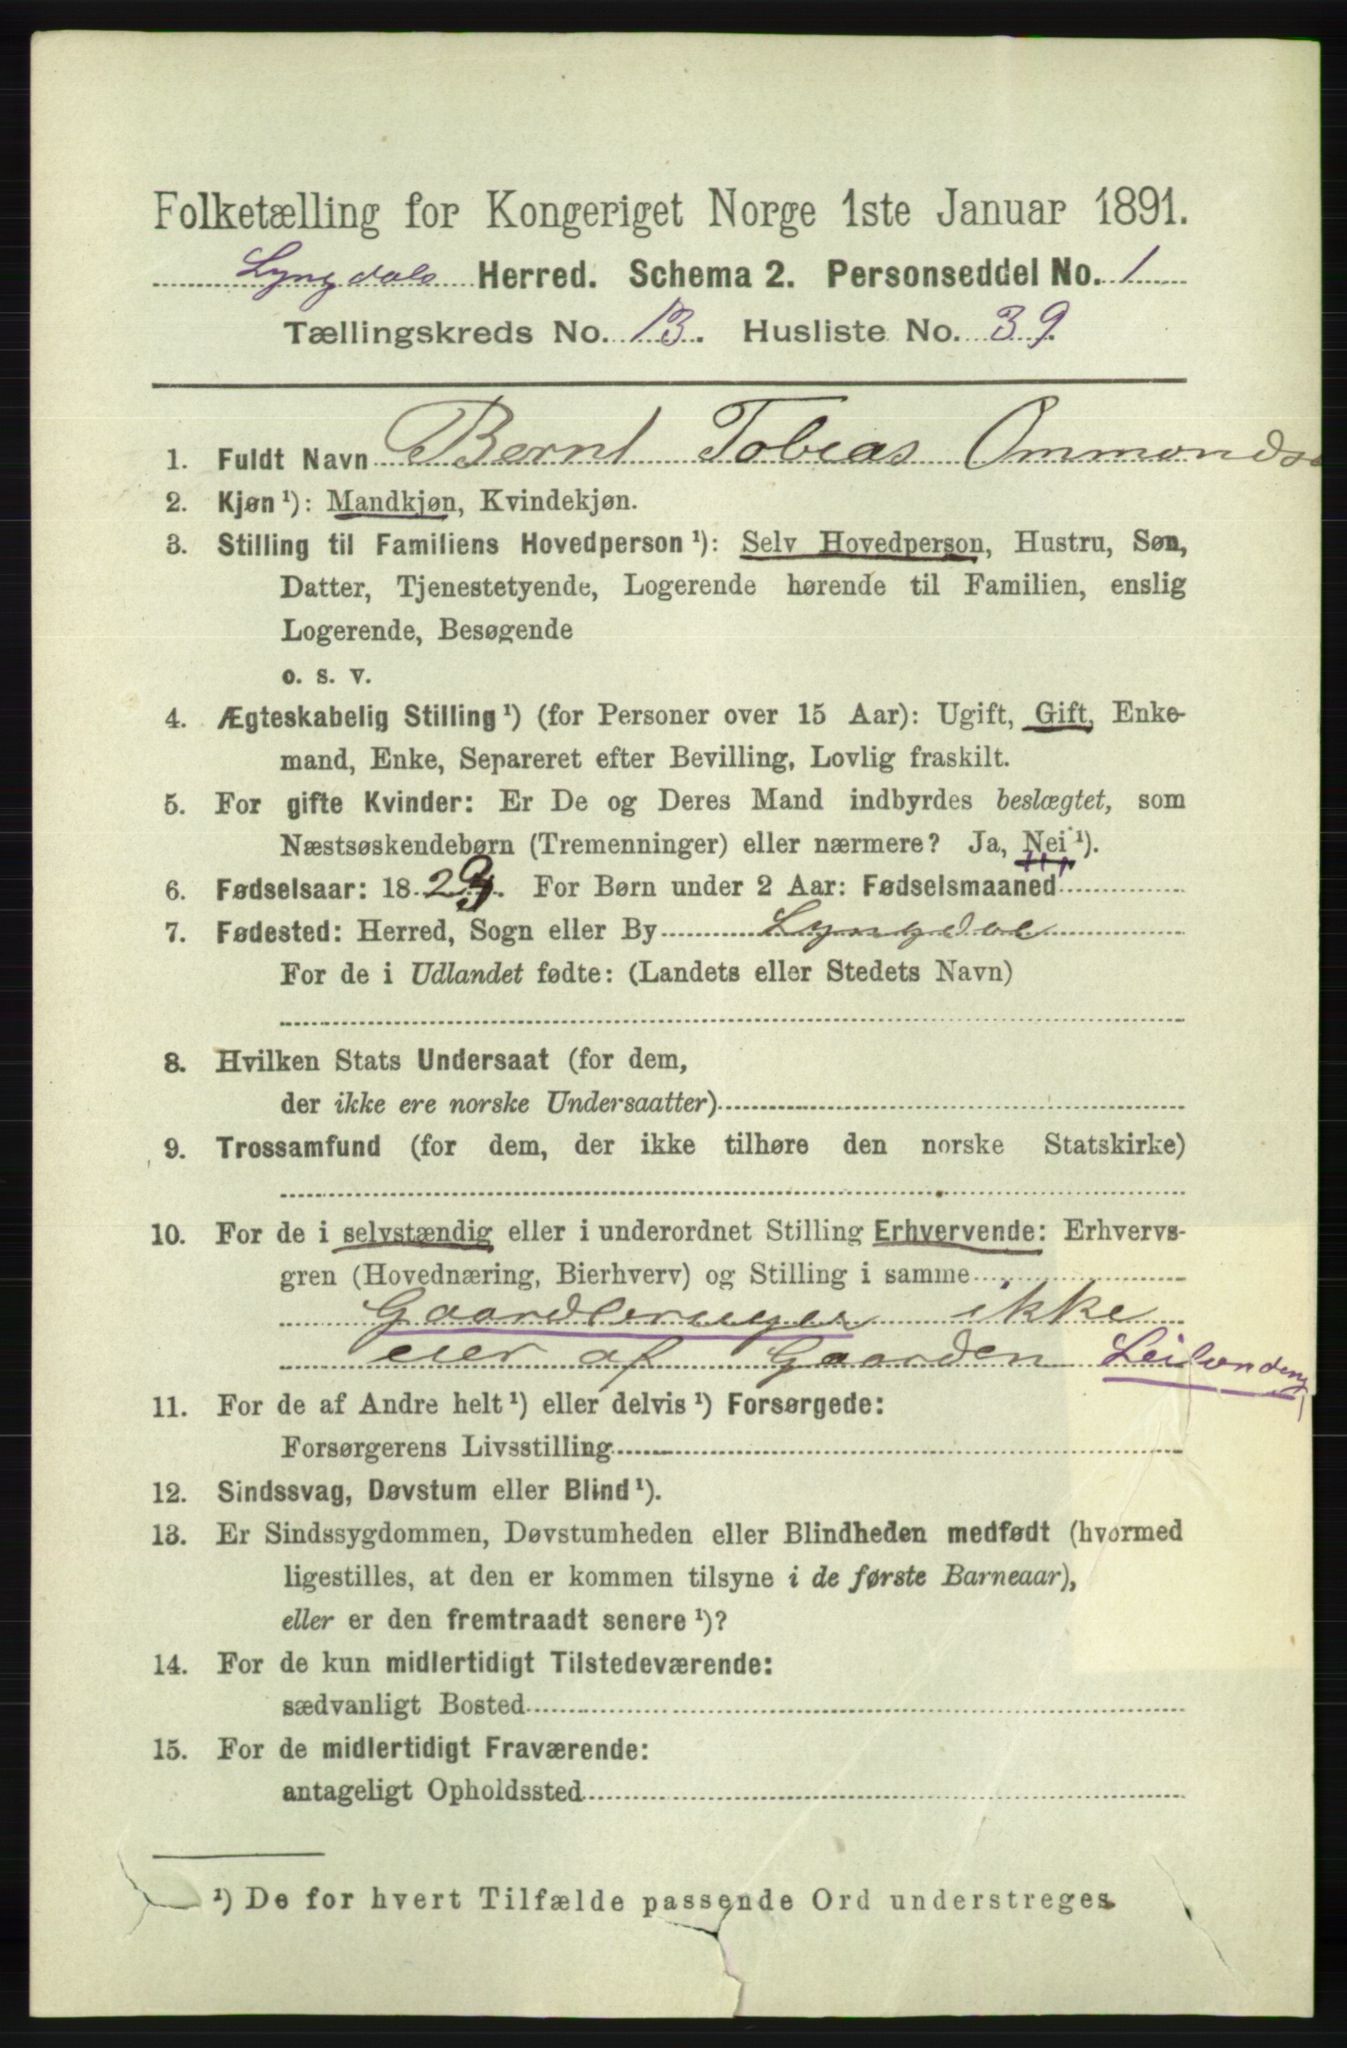 Folketælling for Kongeriget Norge 1ste Januar 1891.
Lyngdals Herred. Schema 2. Personseddel No. 1
Tællingskreds No. 13. Husliste No. 39.
1. Fuldt Navn Bernt Tobias Ommunds
2. Kjøn ¹): Mandkjøn, Kvindekjøn.
3. Stilling til Familiens Hovedperson ¹): Selv Hovedperson, Hustru, Søn,
Datter, Tjenestetyende, Logerende hørende til Familien, enslig
Logerende, Besøgende
o. s. v.
4. Ægteskabelig Stilling ¹) (for Personer over 15 Aar): Ugift, Gift, Enke-
mand, Enke, Separeret efter Bevilling, Lovlig fraskilt.
5. For gifte Kvinder: Er De og Deres Mand indbyrdes beslægtet, som
Næstsøskendebørn (Tremenninger) eller nærmere? Ja, Nei ¹).
6. Fødselsaar: 18 2 . For Børn under 2 Aar: Fødselsmaaned
7. Fødested: Herred, Sogn eller By Lyngdal
For de i Udlandet fødte: (Landets eller Stedets Navn)
8. Hvilken Stats Undersaat (for dem,
der ikke ere norske Undersaatter)
9. Trossamfund (for dem, der ikke tilhøre den norske Statskirke)
10. For de i selvstændig eller i underordnet Stilling Erhvervende: Erhvervs-
gren (Hovednæring, Bierhverv) og Stilling i samme
Gaardbruger ikke
eier af Gaarden Leilænding
11. For de af Andre helt ¹) eller delvis ¹) Forsørgede:
Forsørgerens Livsstilling
12. Sindssvag, Døvstum eller Blind ¹).
13. Er Sindssygdommen, Døvstumheden eller Blindheden medfødt (hvormed
ligestilles, at den er kommen tilsyne i de første Barneaar),
eller er den fremtraadt senere ¹)?
14. For de kun midlertidigt Tilstedeværende:
sædvanligt Bosted
15. For de midlertidigt Fraværende:
antageligt Opholdssted
¹) De for hvert Tilfælde passende Ord understreges.